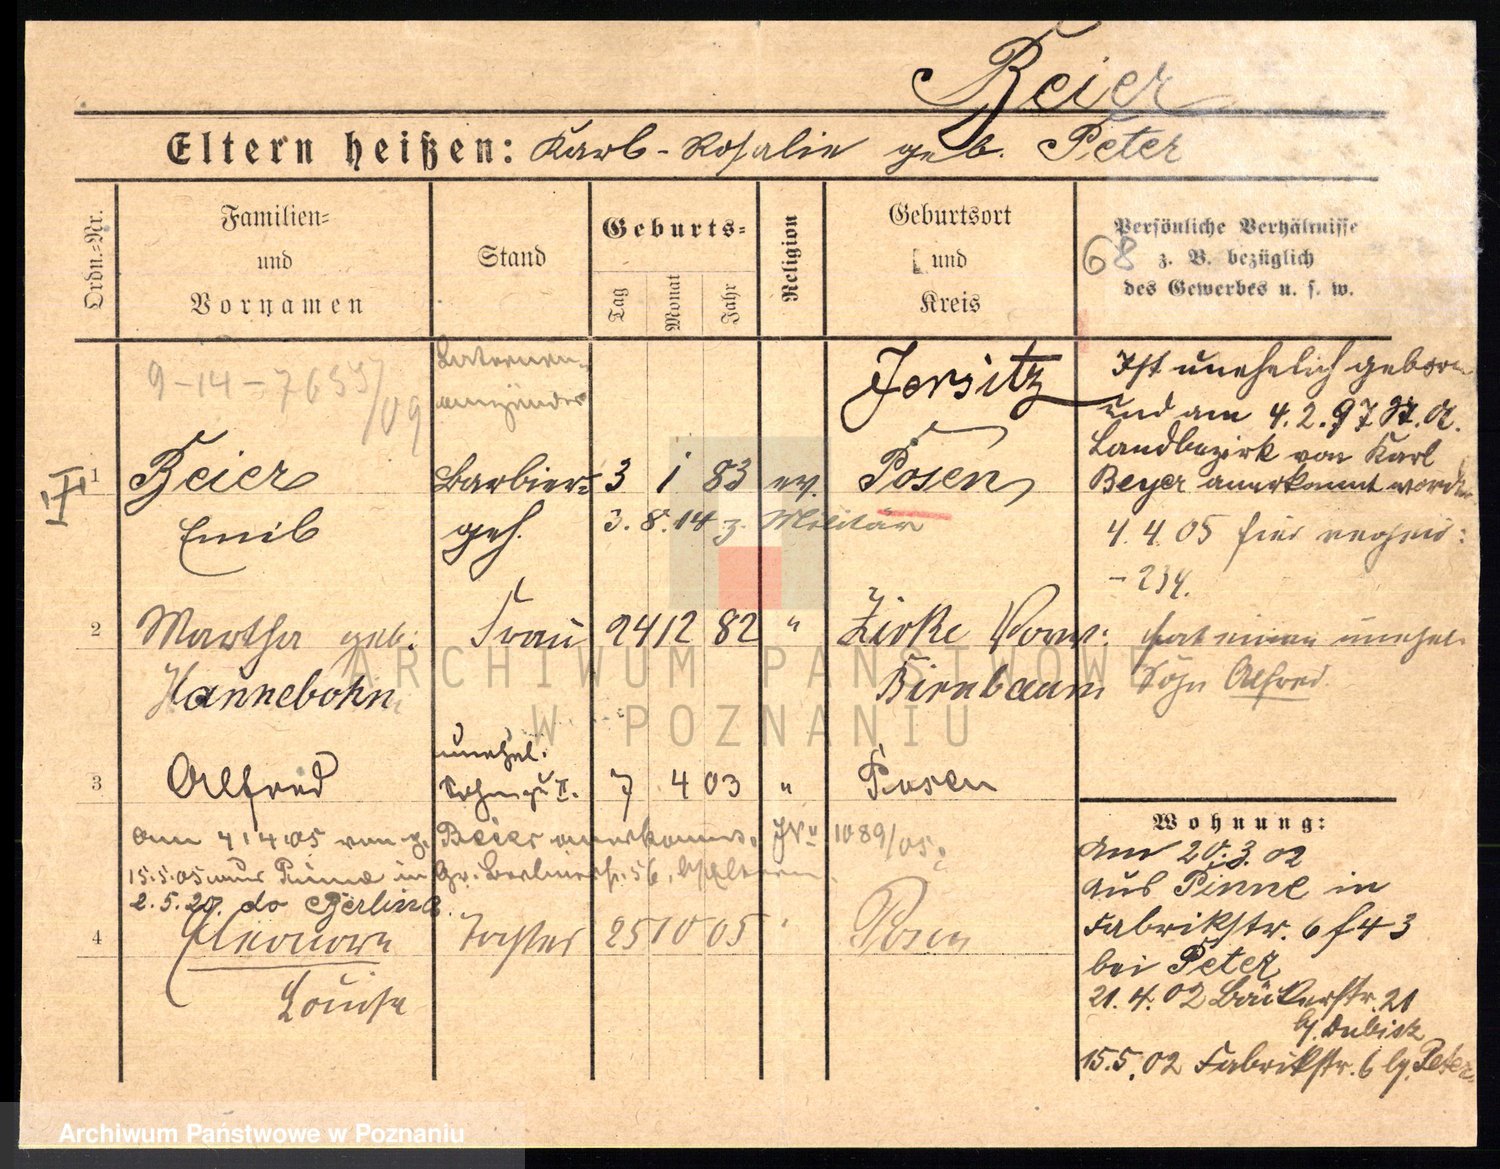 Beier
Eltern heißen: Karl - Rosalie geb. Peter
Ordn.-Nr.
Familien-
und
Vornamen
Stand
Geburts-
Tag
Monat
Jahr
Religion
Geburtsort
und
Kreis
68
Persönliche Verhältnisse
z. B. bezüglich
des Gewerbes u. s. w.
9-14-7655/09
Laternen-
anzünder
Jersitz
Ist unehelich geboren
und am 4.2.97 St. A.
Landbezirk von Karl
Beyer anerkannt worden
1 Beier Barbier- 3 1 83 ev. Posen
Emil geh. 3.8.14 z. Militär
4.4.05 hier
- 234.
2 Martha geb. Frau 24 12 82 " Zirke
hat einen unehel.
Hannebohn Birnbaum
Sohn Alfred.
unehel.
3 Alfred Sohn zu II. 7 4 03 " Posen
am 4.4.05 von Beier anerkannt. 1089/05.
15.5.05 aus Pinne in Gr. Berlinerstr. 56,
2.5.20. do Berlin
4 Eleonore Tochter 25 10 05 " Posen
Louise
Wohnung:
Am 20.3.02
aus Pinne in
Fabrikstr. 6 f 43
bei Peter
21.4.02 Bäckerstr. 21
15.5.02 Fabrikstr. 6 Peter
ARCHIWUM PAŃSTWOWE
W POZNANIU
Archiwum Państwowe w Poznaniu